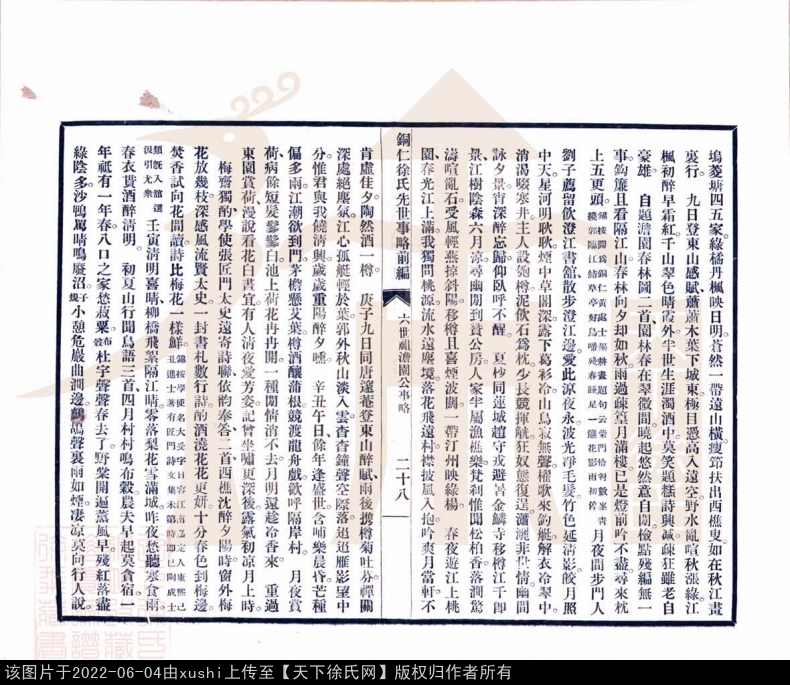 塢菱塘四五家綠橘丹楓映日明蒼然一帶遠山橫瘦筇扶出西樵叟如在秋江畫
裏行 九日登東山感賦蕭蕭木葉下城東極目憑高入遠空野水亂喧秋漲綠江
楓初醉早霜紅千山翠色晴霞外半世生涯濁酒中莫笑題糕詩興減疎狂雖老自
豪雄 自題澹園春林圖二首園林春在翠微間曉起悠然意自閒檢點殘編無一
事鈎簾且看隔江山春林向夕却如秋雨過疎篁月滿樓已是燈前吟不盡尋來枕
上五更頭 月夜間步門人
劉子薦留飲澄江書館散步澄江邊愛此涼夜永波光淨毛髮竹色延清影皎月照
中天星河明耿耿煙中草閣深露下葛衫冷山鳥寂無聲櫂歌來釣艇解衣冷翠中
消渴啜寒井主人設匏樽泥飲石爲枕少長競揮觥狂奴態復逞瀟灑非世情幽間
詠夕景宵深醉忘歸仰臥呼不醒 夏杪同蓮城趙守戎避暑金鱗寺移樽江千卽
景江樹陰森六月涼尋幽閒到贊公房人家半屬漁樵樂梵刹惟聞松柏香落澗驚
濤喧亂石受風輕燕掠斜陽移樽且喜煙波闊一帶汀州映綠楊 春夜遊江上桃
園春光江上滿我獨問桃源流水遠塵境落花飛遠村襟披風入抱吟爽月當軒不
銅仁徐氏先世事略前編 六世祖澹園公事略 二十八
肯虛佳夕陶然酒一樽 庚子九日同唐遠菴登東山醉賦雨後攜樽菊吐芬禪關
深處絕塵氛江心孤艇輕於葉郭外秋山淡入雲杳杳鐘聲空際落迢迢雁影望中
分惟君與我饒清興歲歲重陽醉夕曛 辛丑午日餘年逢盛世含哺樂晨昏芒種
偏多雨江潮欲到門茅檐懸艾葉樽酒釀蒲根競渡龍舟戲歡呼隔岸村 月夜賞
荷病餘短髮鬖鬖白池上荷花冉冉開一種閒情消不去月明還趁冷香來 重過
東園賞荷漫說看花白晝宜有人清夜愛芳姿記曾坐嘯更深後露氣初涼月上時
梅齋獨酌學使張匠門太史遠寄詩聯依韵奉答二首西樵沈醉夕陽時窗外梅
花放幾枝深感風流賢太史一封書札數行詩酌酒澆花花更妍十分春色到梅邊
焚香試向花間讀詩比梅花一樣鮮
壬寅清明喜晴柳橋飛絮隔江晴零落梨花雪滿城昨夜愁聽寒食雨
春衣貰酒醉清明 初夏山行聞鳥語三首四月村村鳴布穀農夫早起莫貪宿一
年祗有一年春八口之家愁菽粟布穀杜宇聲聲春去了野棠開遍薰風早殘紅落盡
綠陰多沙鴨屬晴鳴靨沼子規小憩危巖曲澗邊鷓鴣聲裏雨如煙淒涼莫向行人說
该图片于2022-06-04由xushi上传至【天下徐氏网】版权归作者所有